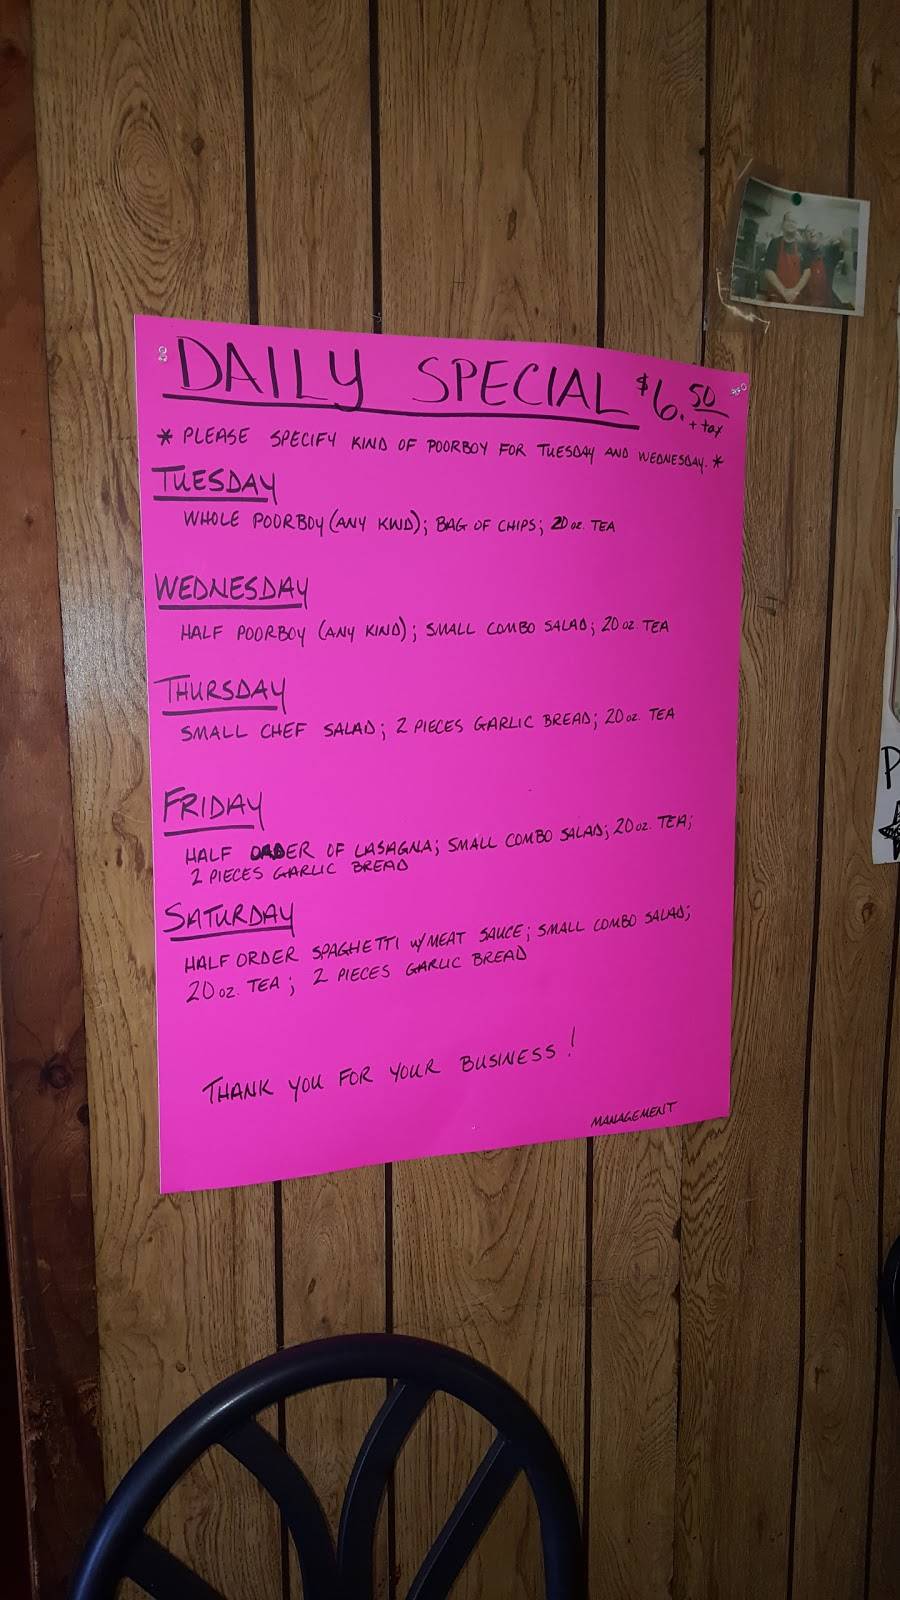 DAILY SPECIAL $6.50
+ tax
* PLEASE SPECIFY KIND OF POORBOY FOR TUESDAY AND WEDNESDAY. *
TUESDAY
WHOLE POORBOY (ANY KIND); BAG OF CHIPS; 20 oz. TEA
WEDNESDAY
HALF POORBOY (ANY KIND); SMALL COMBO SALAD; 20 oz. TEA
THURSDAY
SMALL CHEF SALAD; 2 PIECES GARLIC BREAD; 20 oz. TEA
FRIDAY
HALF ORDER OF LASAGNA; SMALL COMBO SALAD; 20 oz. TEA;
2 PIECES GARLIC BREAD
SATURDAY
HALF ORDER SPAGHETTI w/ MEAT SAUCE; SMALL COMBO SALAD;
20 oz. TEA; 2 PIECES GARLIC BREAD
THANK YOU FOR YOUR BUSINESS!
MANAGEMENT
P